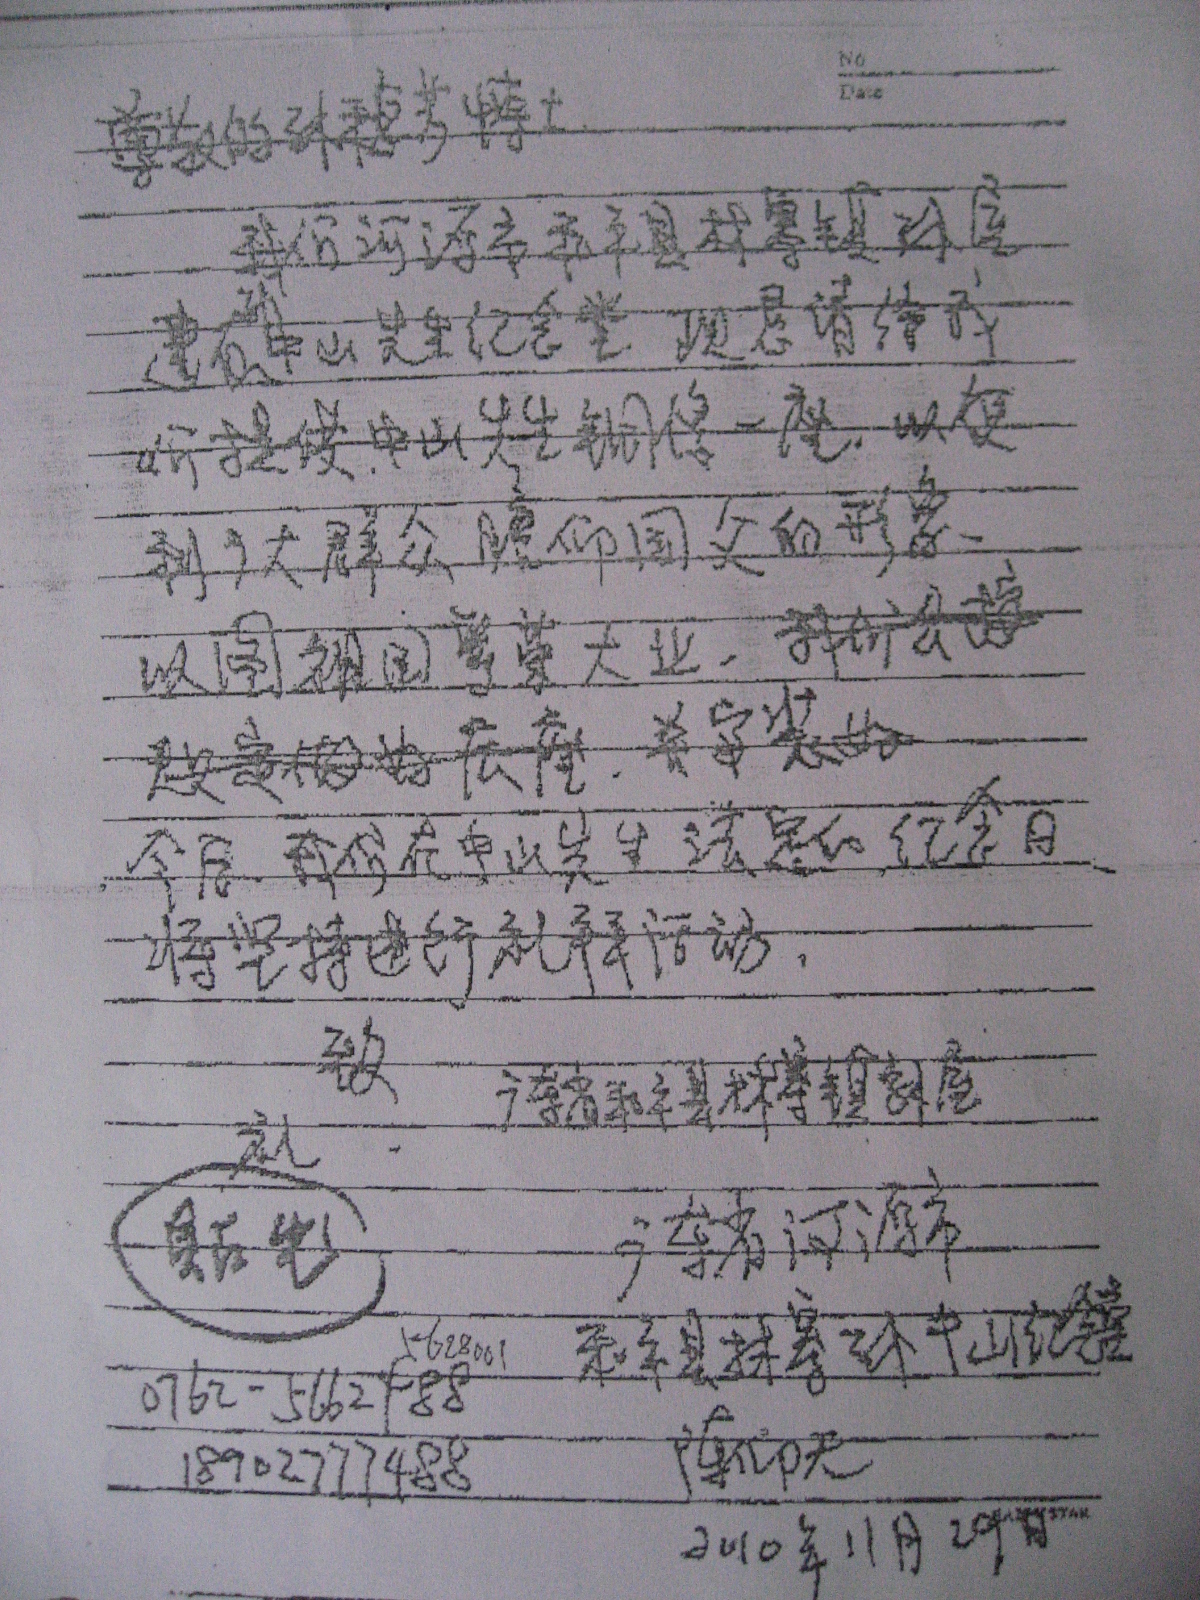 No
Date
尊敬的孙穗芳博士
我们河源市和平县林寨镇孙屋
建有孙中山先生纪念堂 现恳请
提供中山先生铜像一座.以便
利广大群众瞻仰国父的形象.
以图祖国繁荣大业.我们会
好底座.
今后.我们在中山先生诞忌和纪念日
将坚持进行礼拜活动.
致
礼
广东省和平县林寨镇孙屋
广东省河源市
和平县林寨孙中山纪念堂
5628001
0762-5662488
18902777488
陈仰光
2010年11月29日